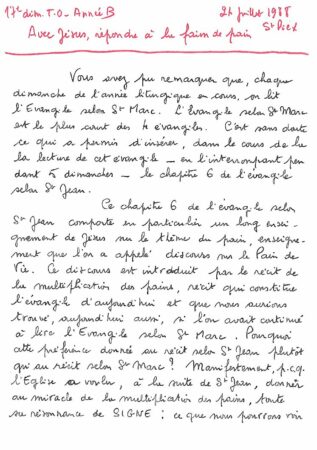 17e dim. T.O - Année B
24 Juillet 1988
St Piex
Avec Jésus, répondre à la faim de pain
Vous avez pu remarquer que, chaque
dimanche de l'année liturgique en cours, on lit
l'Evangile selon St Marc. L'Evangile selon St Marc
est le plus court des 4 évangiles. C'est sans doute
ce qui a permis d'insérer, dans le cours de la
la lecture de cet évangile _ en l'interrompant pen
dant 5 dimanches _ le chapitre 6 de l'évangile
selon St Jean.
Ce chapitre 6 de l'évangile selon
St Jean comporte en particulier un long ensei-
gnement de Jésus sur le thème du pain, enseigne-
ment que l'on a appelé discours sur le Pain de
Vie. Ce discours est introduit par le récit de
la multiplication des pains, récit qui constitue
l'évangile d'aujourd'hui et que nous aurions
trouvé, aujourd'hui aussi, si l'on avait continué
à lire l'Evangile selon St Marc. Pourquoi
cette préférence donnée au récit selon St Jean plutôt
qu'au récit selon St Marc ? Manifestement, p.c.q.
l'Eglise a voulu, à la suite de St Jean, donner
au miracle de la multiplication des pains, toute
sa résonance de SIGNE : ce que nous pourrons voir